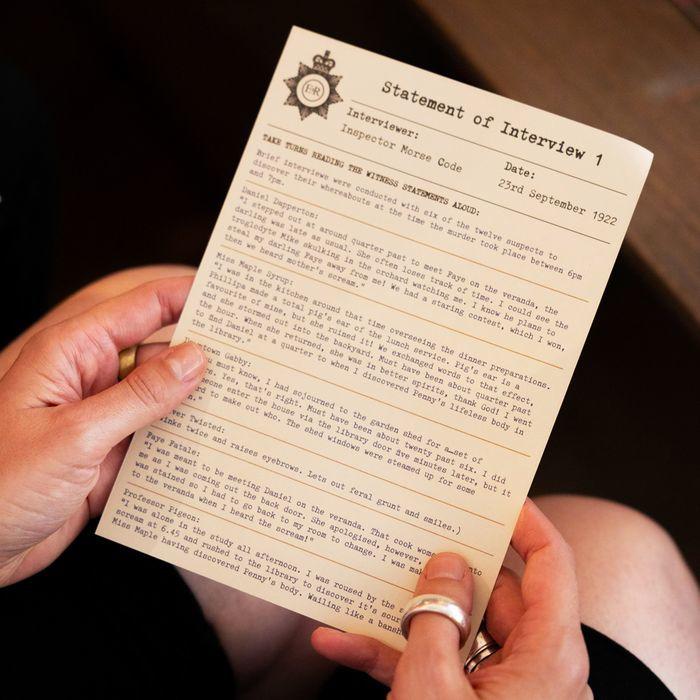 Statement of Interview 1
Interviewer:
Inspector Morse Code
Date:
23rd September 1922
TAKE TURNS READING THE WITNESS STATEMENTS ALOUD:
Brief interviews were conducted with six of the twelve suspects to
discover their whereabouts at the time the murder took place between 6pm
and 7pm.
Daniel Dapperton:
"I stepped out at around quarter past to meet Faye on the veranda, the
darling was late as usual. She often loses track of time. I could see the
troglodyte Mike skulking in the orchard watching me. I know he plans to
steal my darling Faye away from me! We had a staring contest, which I won,
then we heard mother's scream."
Miss Maple Syrup:
"I was in the kitchen around that time overseeing the dinner preparations.
Phillipa made a total pig's ear of the lunch service. Pig's ear is a
favourite of mine, but she ruined it! We exchanged words to that effect,
and she stormed out into the backyard. Must have been about quarter past
the hour. When she returned, she was in better spirits, thank God! I went
to find Daniel at a quarter to when I discovered Penny's lifeless body in
the library."
town Gabby:
ou must know, I had sojourned to the garden shed for a…set of
s. Yes, that's right. Must have been about twenty past six. I did
meone enter the house via the library door five minutes later, but it
rd to make out who. The shed windows were steamed up for some
ver Twisted:
inks twice and raises eyebrows. Lets out feral grunt and smiles.)
Faye Fatale:
"I was meant to be meeting Daniel on the veranda. That cook wom nto
me as I was coming out the back door. She apologised, however,
was stained so I had to go back to my room to change. I was mak
to the veranda when I heard the scream!"
Professor Pigeon:
"I was alone in the study all afternoon. I was roused by the s
scream at 6.45 and rushed to the library to discover it's sour
Miss Maple having discovered Penny's body. Wailing like a bansh